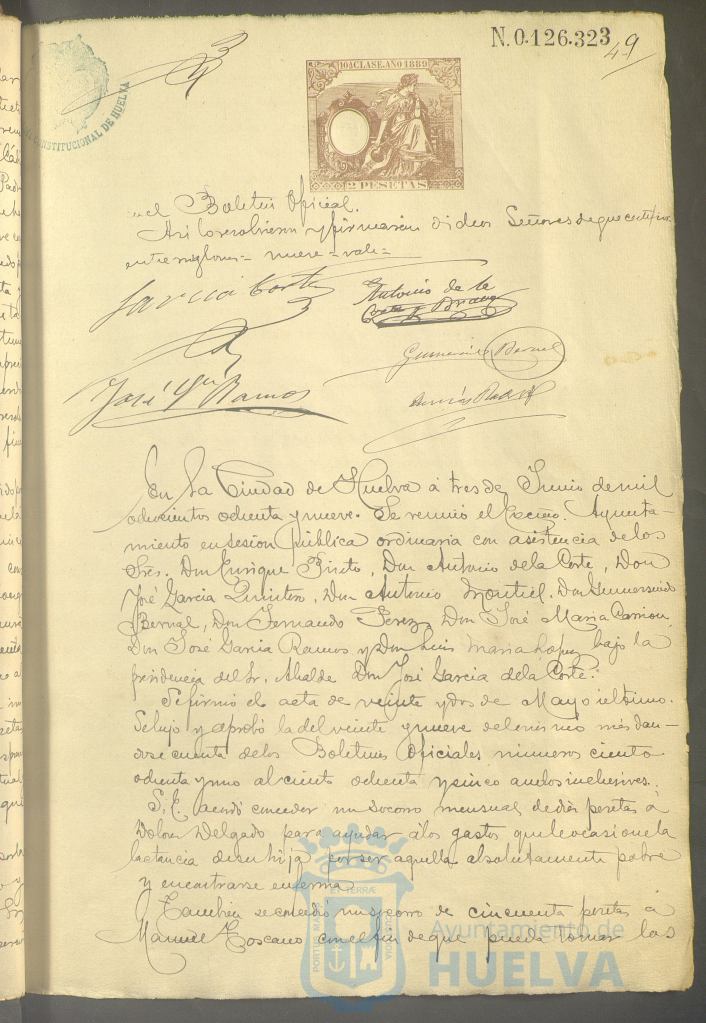 N.0.126.323
49
CONSTITUCIONAL DE HUELVA
10ªCLASE.AÑO 1889
2 PESETAS
el Boletin Oficial.
Asi lo resolvieron y firmaron dichos Señores de que certifico
entrerenglones = nueve = vale =
Garcia Corte
Antonio de la
Corte Bravo
Gumersindo Bernal
José Gª Ramos
En la Ciudad de Huelva á tres de Junio de mil
ochocientos ochenta y nueve. Se reunió el Excmo. Ayunta-
miento en sesion pública ordinaria con asistencia de los
Sres. Don Enrique Prieto, Don Antonio de la Corte, Don
José Garcia Quintero, Don Antonio Montiel, Don Gumersindo
Bernal, Don Fernando Perez, Don José Maria Carrion,
Don José Garcia Ramos y Don Luis Maria Lopez bajo la
presidencia del Sr. Alcalde Don José Garcia de la Corte.
Se firmó el acta de veinte y dos de Mayo último.
Se leyó y aprobó la del veinte y nueve del mismo mes dan-
dose cuenta de los Boletines Oficiales números ciento
ochenta y uno al ciento ochenta y cinco ambos inclusives.
S. E. acordó conceder un socorro mensual de diez pesetas á
Dolores Delgado para ayudar á los gastos que le ocasione la
lactancia de su hija por ser aquella absolutamente pobre
y encontrarse enferma
Tambien se concedió un socorro de cincuenta pesetas á
Manuel Toscano con el fin de que pueda tomar las
PORTUS MARIS ET TERRÆ CUSTODIA
Ayuntamiento de
HUELVA